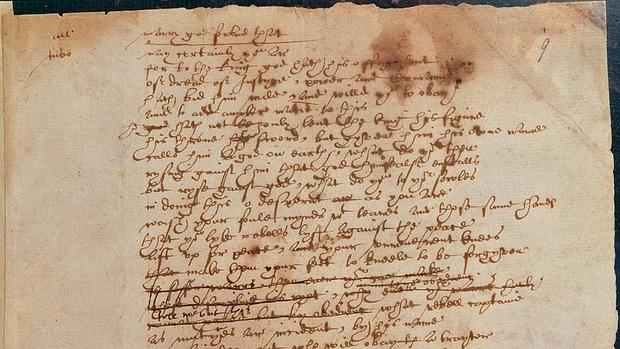 all marry god forbid that
moo nay certainly yo ar
for to the king god hath his offyc lent
of dread of Iustyce, power and Comaund
hath bid him rule, and willd yo to obay
and to add ampler matie to this
he hath not only lent the king his figure
his throne his sword, but gyven him his owne name
calls him a god on earth, what do yo then
rysing gainst him that god himsealf enstalls
but ryse gainst god, what do yo to yor sowles
in doing this o desperat ar as you are
wash your foule mynds wt teares and those same handes
that yo lyke rebells lyft against the peace
lift vp for peace, and your vnreuerent knees
that make them your feet to kneele to be forgyven
is safer warrs, then euer yo can make
whose discipline is ryot, why euen yor warrs hurly
tell me but this
but by obedienc what rebell captaine
as mutynes ar incident, by his name
who will obay a traytor
9